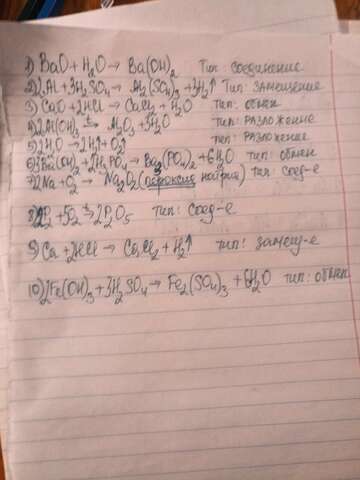 1) BaO + H₂O → Ba(OH)₂ Тип: соединение
2) 2Al + 3H₂SO₄ → Al₂(SO₄)₃ + 3H₂↑ Тип: замещение
3) CaO + 2HCl → CaCl₂ + H₂O тип: обмен
4) 2Al(OH)₃ t→ Al₂O₃ + 3H₂O тип: разложение
5) 2H₂O → 2H₂↑ + O₂↑ тип: разложение
6) 3Ba(OH)₂ + 2H₃PO₄ → Ba₃(PO₄)₂ + 6H₂O тип: обмен
7) 2Na + O₂ → Na₂O₂ (пероксид натрия) тип: соед-е
8) 4P + 5O₂ t→ 2P₂O₅ тип: соед-е
9) Ca + 2HCl → CaCl₂ + H₂↑ тип: замещ-е
10) 2Fe(OH)₃ + 3H₂SO₄ → Fe₂(SO₄)₃ + 6H₂O тип: обмен